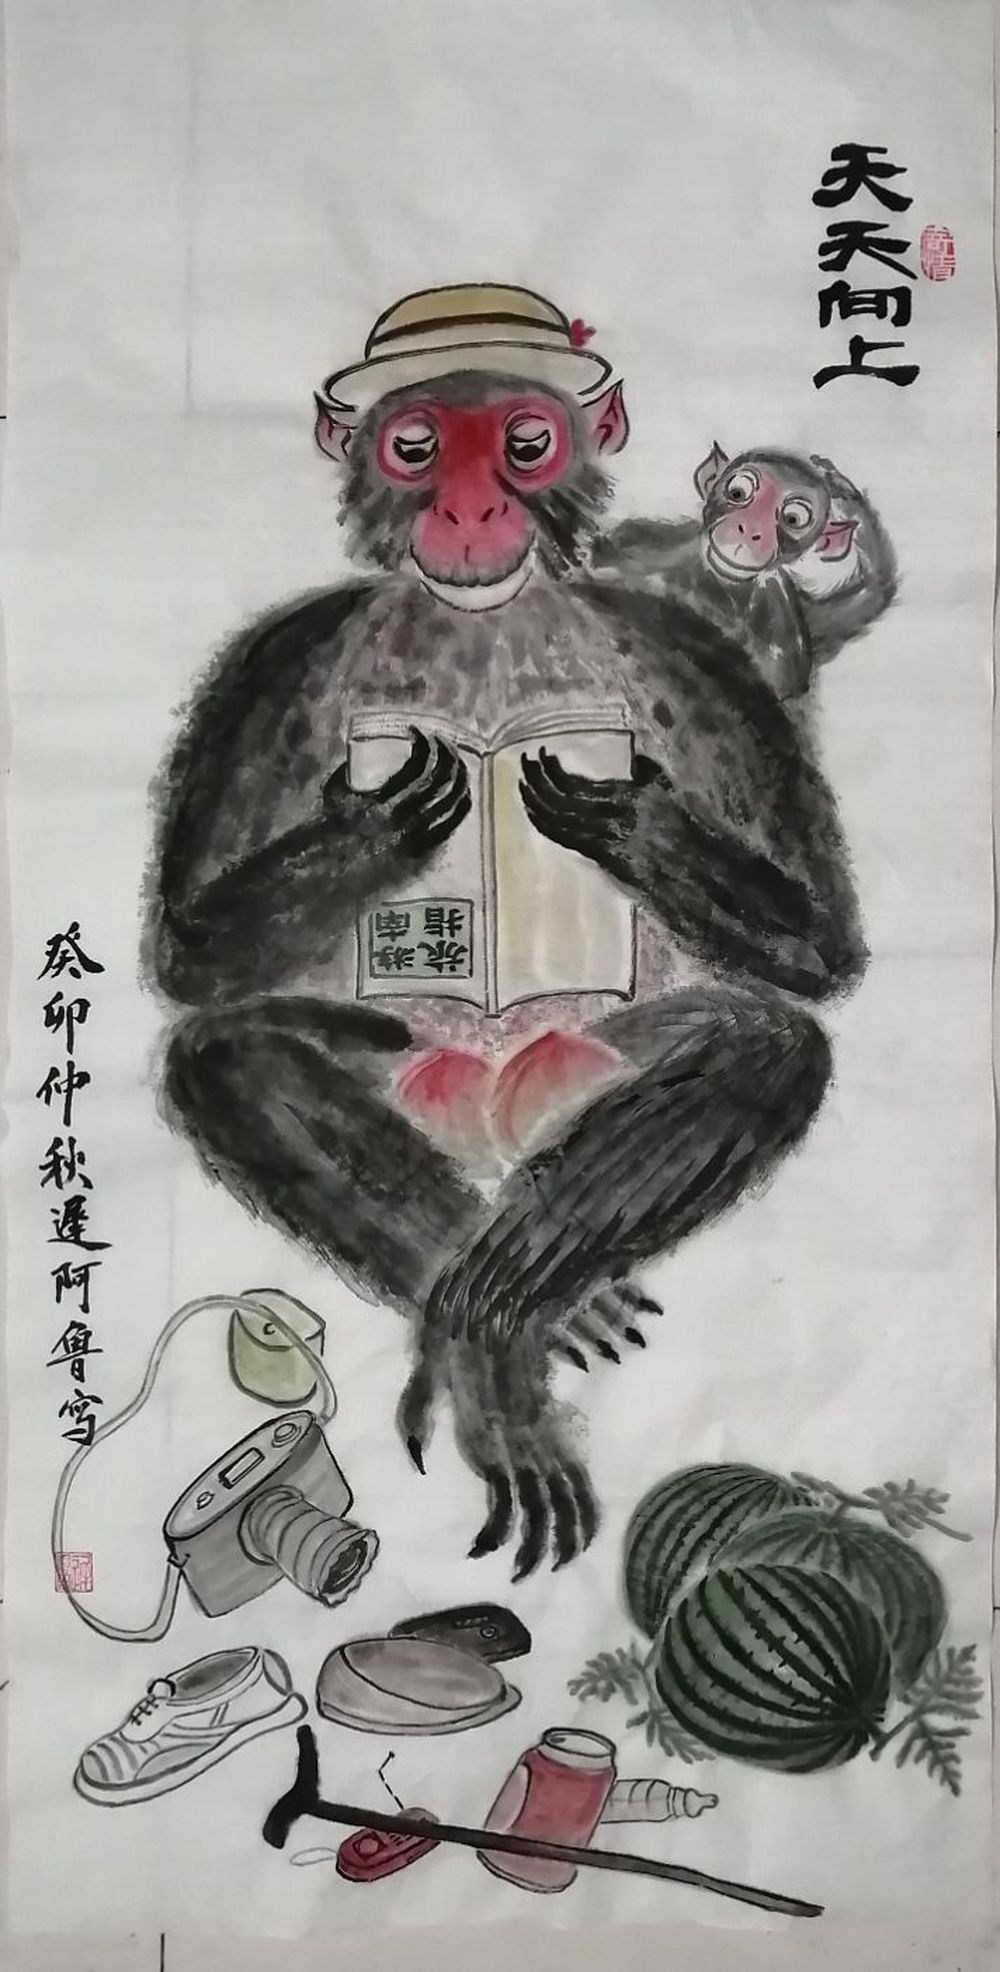 天天向上
旅游
指南
癸卯仲秋遲阿魯寫